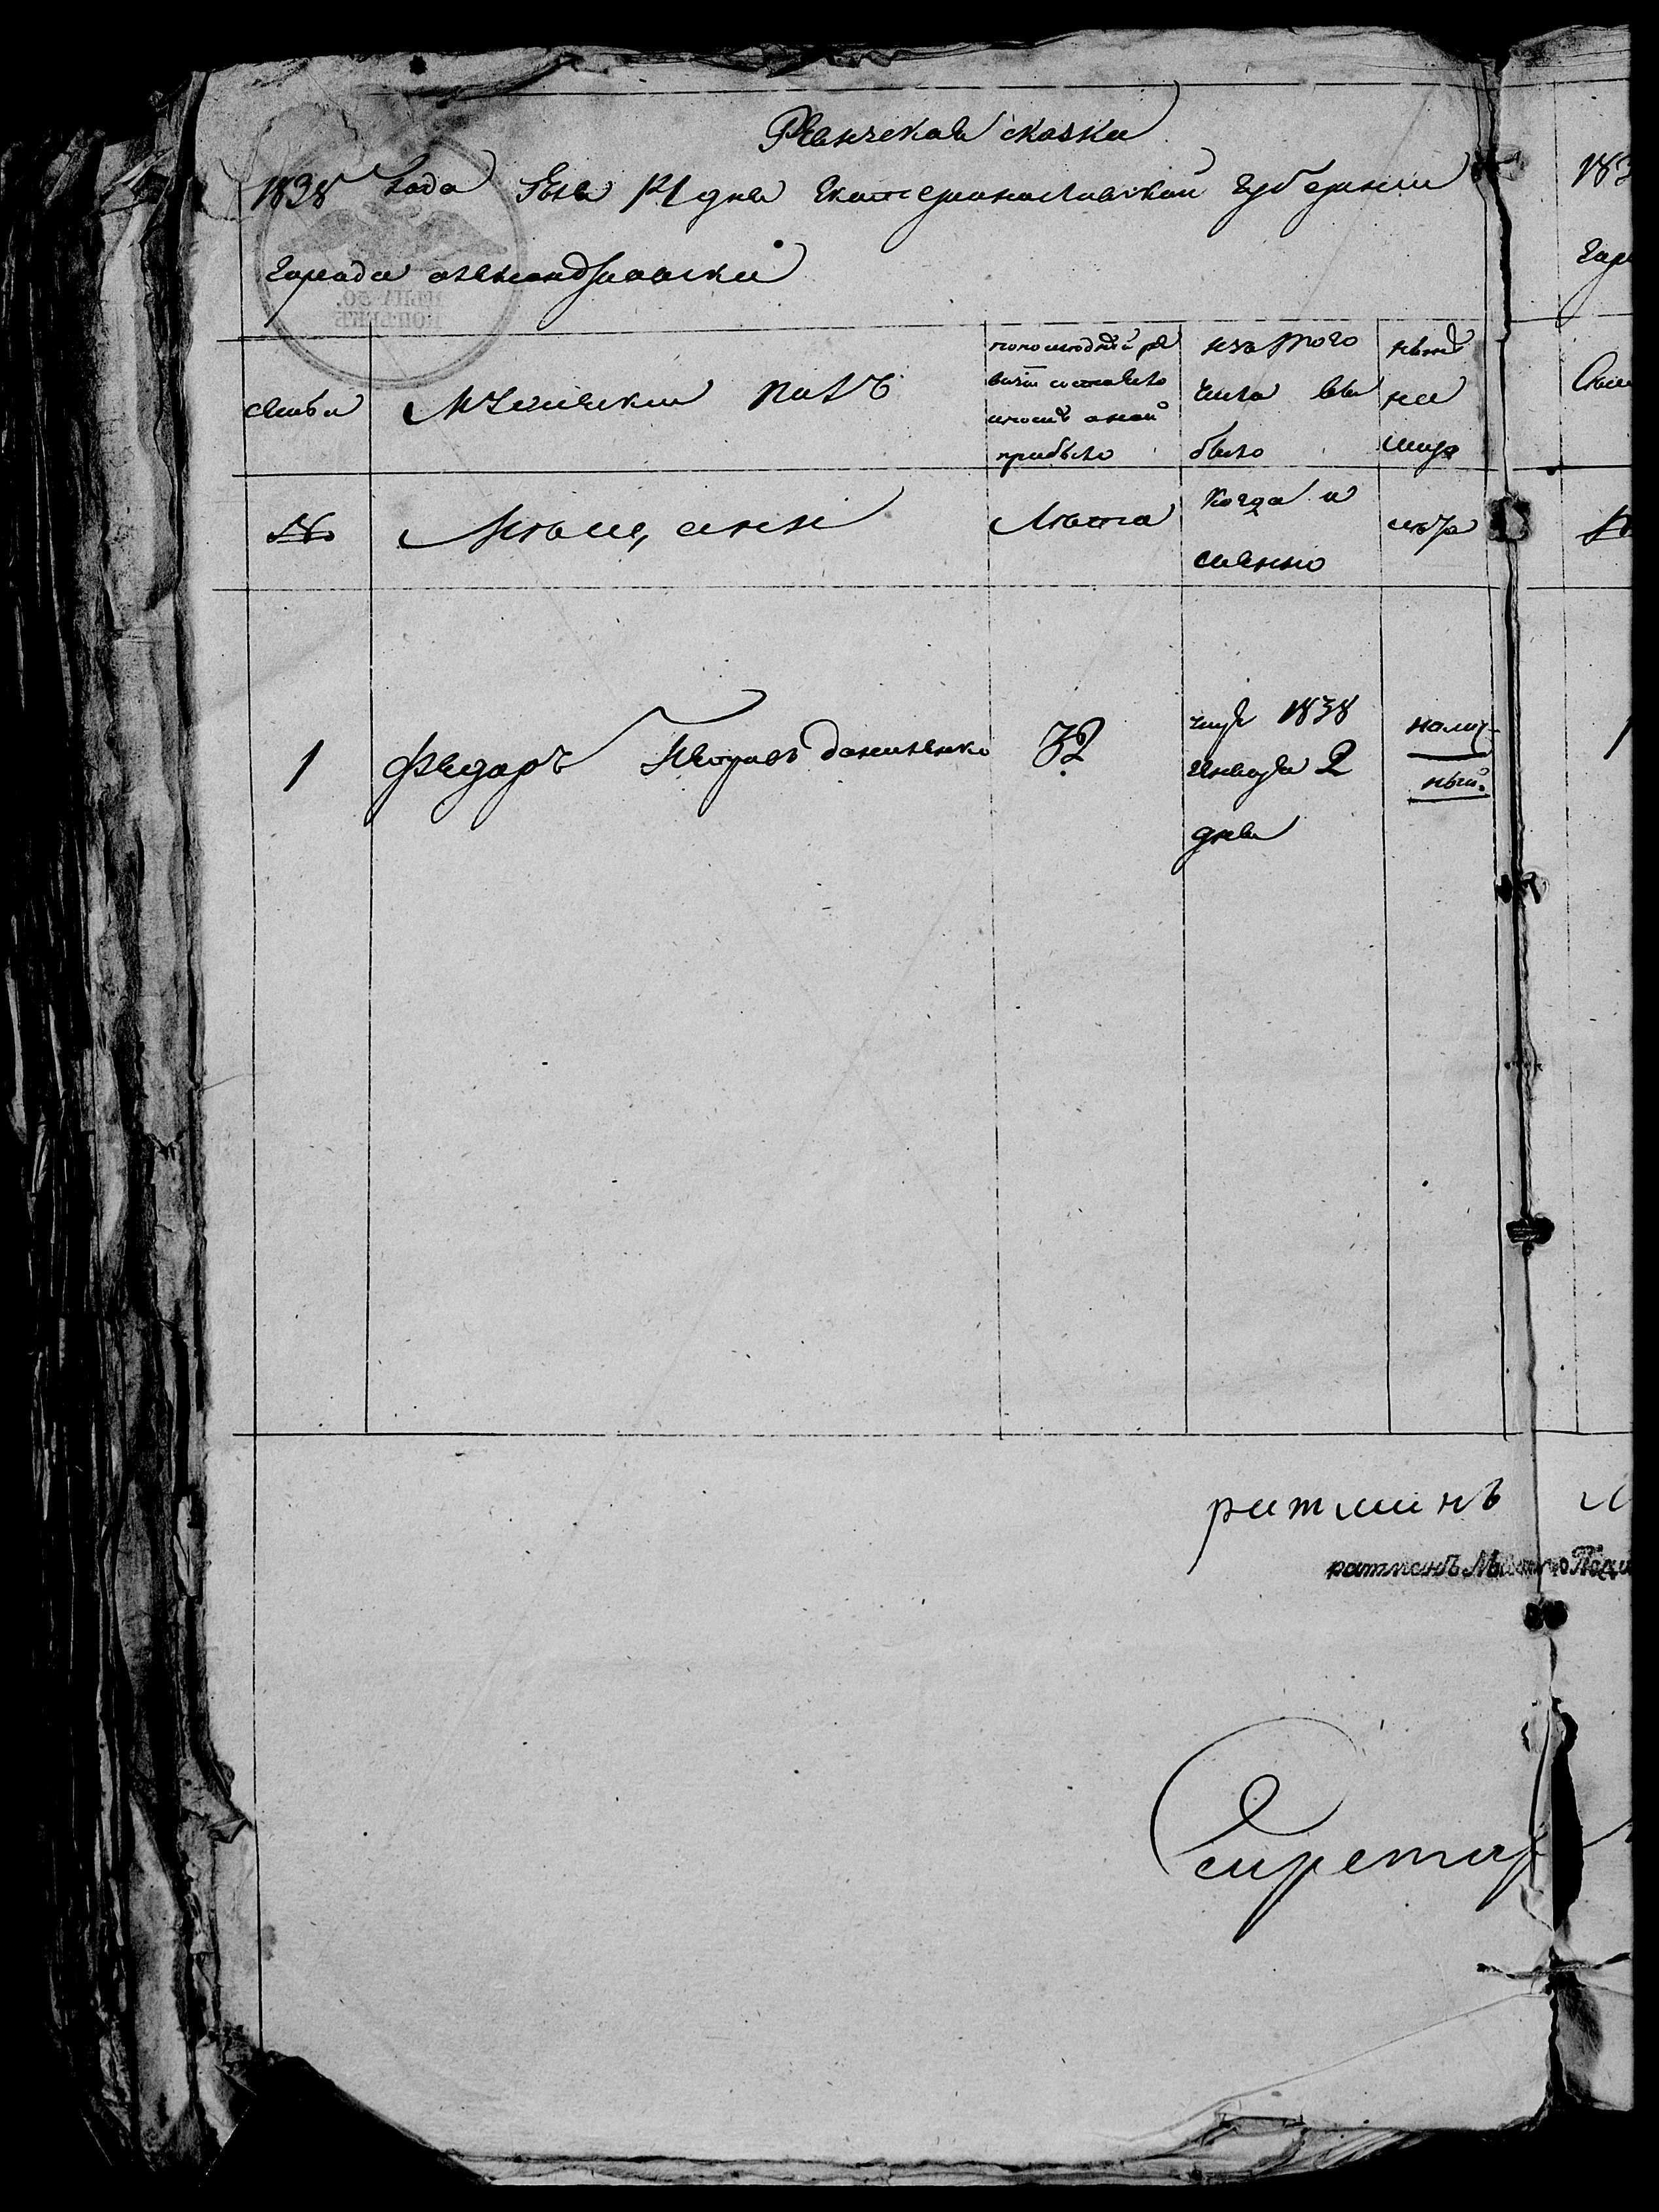 Ревизская сказка
1838 Года Июня 14 дня Екатеринославской губернии
города александровска
ЦѢНА 50.
КОПѢЕКЪ
семьи
Мужескии полъ
попоследней ре
визіи состояло
ипосле оной
прибыло
изъ того
числа вы
было
ныне
на
лицо
№
Мещане
Лета
Когда и
именно
лета
1
Федоръ Петровъ даниленко
32
1838
Генваря 2
дня
налич
ный
183
горо
1
ратманъ
ратманъ
Секретарь